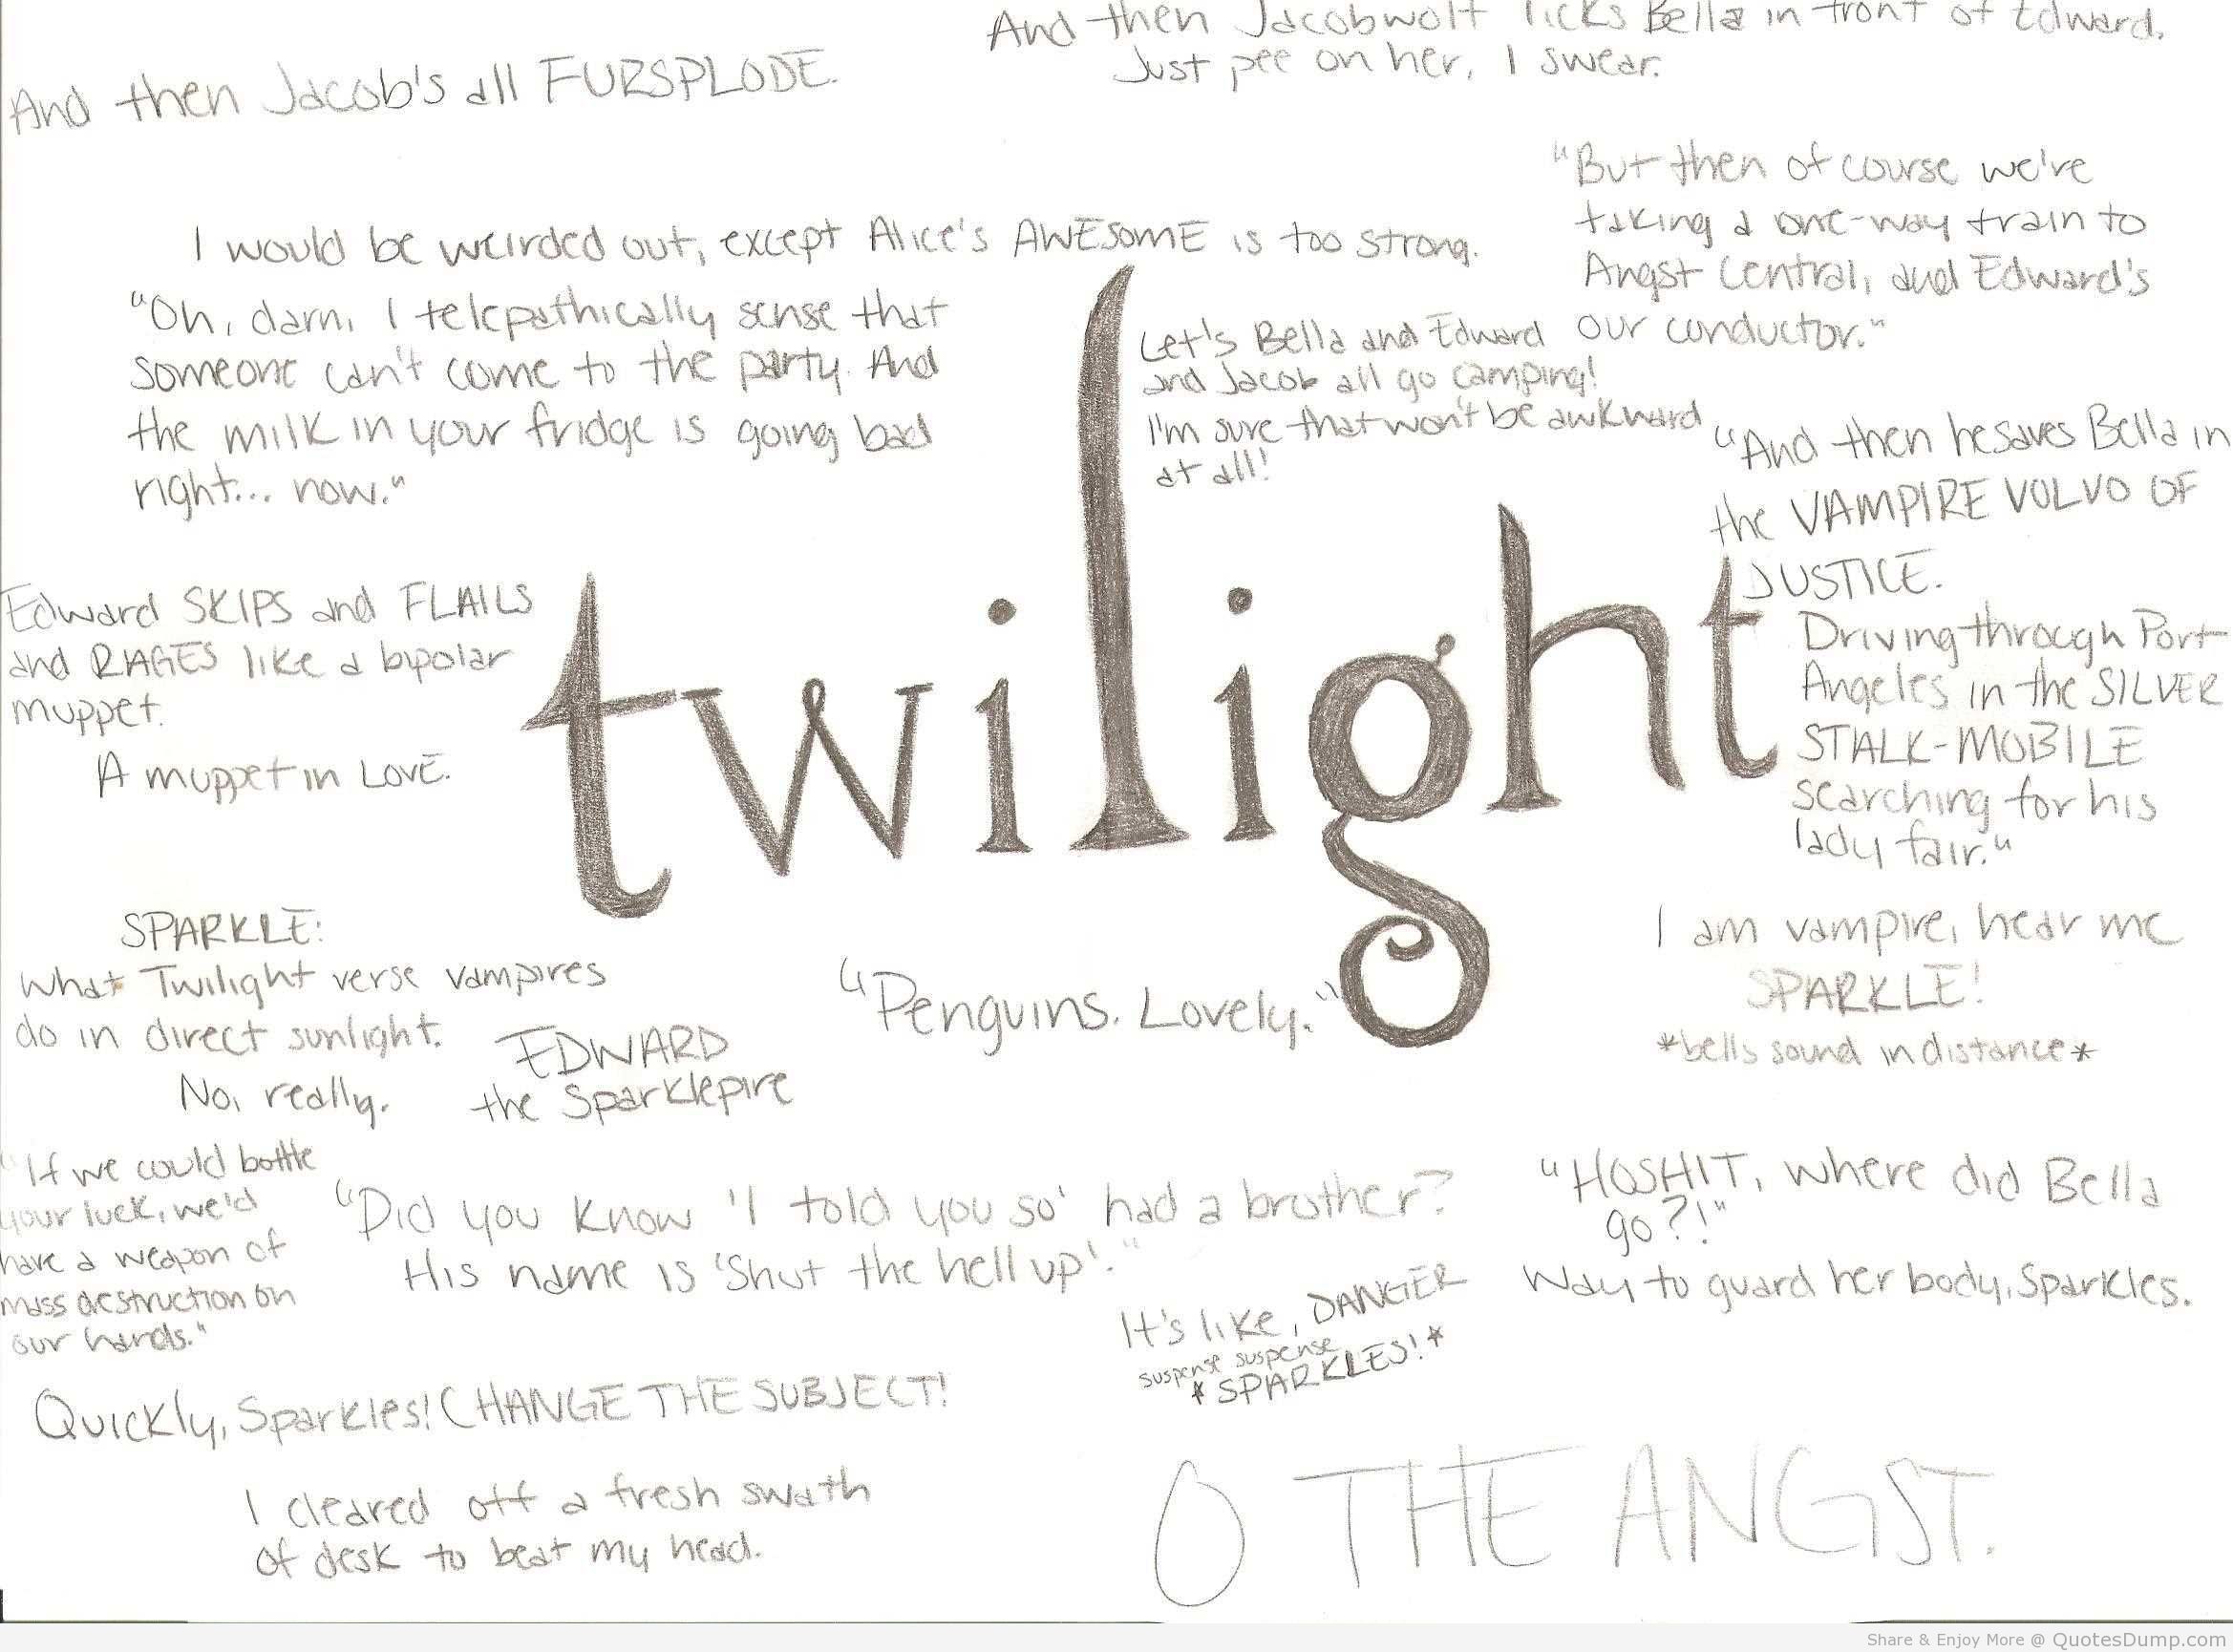 And then Jacobwolf licks Bella in front of Edward.
Just pee on her, I swear.
And then Jacob's all FURSPLODE.
"But then of course we're
taking a one-way train to
Angst Central, and Edward's
our conductor."
I would be weirded out, except Alice's AWESOME is too strong.
"Oh, darn, I telepathically sense that
someone can't come to the party. And
the milk in your fridge is going bad
right... now."
Let's Bella and Edward
and Jacob all go camping!
I'm sure that won't be awkward
at all!
"And then he saves Bella in
the VAMPIRE VOLVO OF
JUSTICE.
Driving through Port
Angeles in the SILVER
STALK-MOBILE
searching for his
lady fair."
Edward SKIPS and FLAILS
and RAGES like a bipolar
muppet.
A muppet in LOVE.
twilight
SPARKLE:
What Twilight verse vampires
do in direct sunlight.
No, really.
EDWARD
the Sparklepire
"Penguins. Lovely."
I am vampire, hear me
SPARKLE!
*bells sound in distance*
"If we could bottle
your luck, we'd
have a weapon of
mass destruction on
our hands."
"Did you know 'I told you so' had a brother?
His name is 'Shut the hell up'."
"HOSHIT, where did Bella
go?!"
Way to guard her body, Sparkles.
It's like, DANGER
suspense suspense
*SPARKLES!*
Quickly, Sparkles! CHANGE THE SUBJECT!
I cleared off a fresh swath
of desk to beat my head.
O THE ANGST.
Share & Enjoy More @ QuotesDump.com